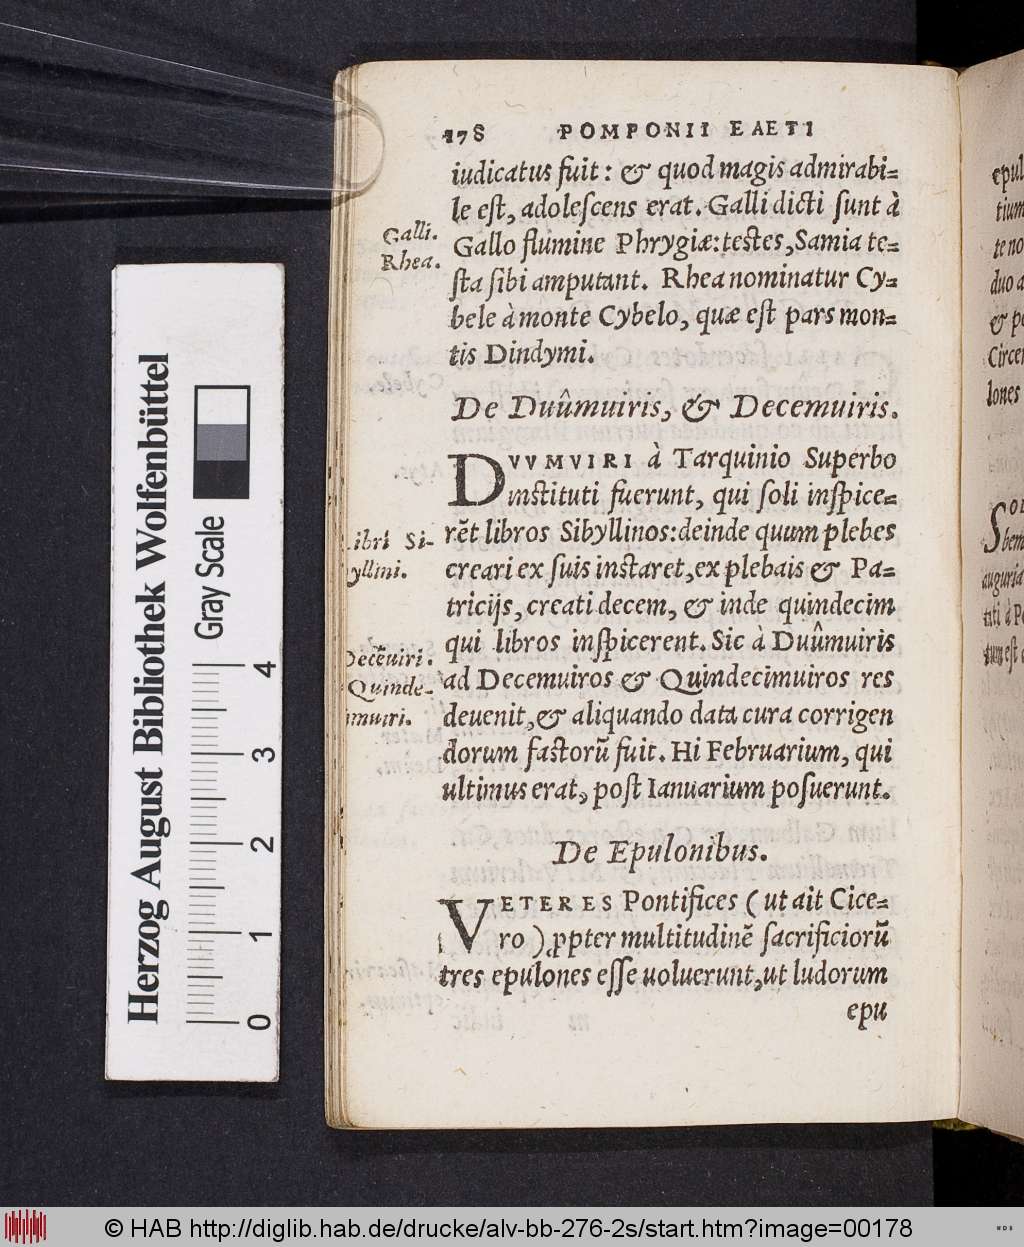 178 POMPONII EAETI
iudicatus fuit: & quod magis admirabi=
le est, adolescens erat. Galli dicti sunt à
Galli.
Gallo flumine Phrygiæ: testes, Samia te=
Rhea.
sta sibi amputant. Rhea nominatur Cy=
bele à monte Cybelo, quæ est pars mon=
tis Dindymi.
De Duûmuiris, & Decemuiris.
DVVMVIRI à Tarquinio Superbo
instituti fuerunt, qui soli inspice=
ibri Si-
rēt libros Sibyllinos: deinde quum plebes
yllini.
creari ex suis instaret, ex plebais & Pa=
tricijs, creati decem, & inde quindecim
qui libros inspicerent. Sic à Duûmuiris
Decēuiri.
ad Decemuiros & Quindecimuiros res
Quinde-
deuenit, & aliquando data cura corrigen
imuiri.
dorum fastorū fuit. Hi Februarium, qui
ultimus erat, post Ianuarium posuerunt.
De Epulonibus.
VETERES Pontifices (ut ait Cice=
ro) ꝓpter multitudinē sacrificiorū
tres epulones esse uoluerunt, ut ludorum
epu
epul
tium
te no
duo a
& po
Circen
lones
SOD
bem
auguria
tuti à Po
tum est
Herzog August Bibliothek Wolfenbüttel
Gray Scale
0 1 2 3 4
© HAB http://diglib.hab.de/drucke/alv-bb-276-2s/start.htm?image=00178
WDB